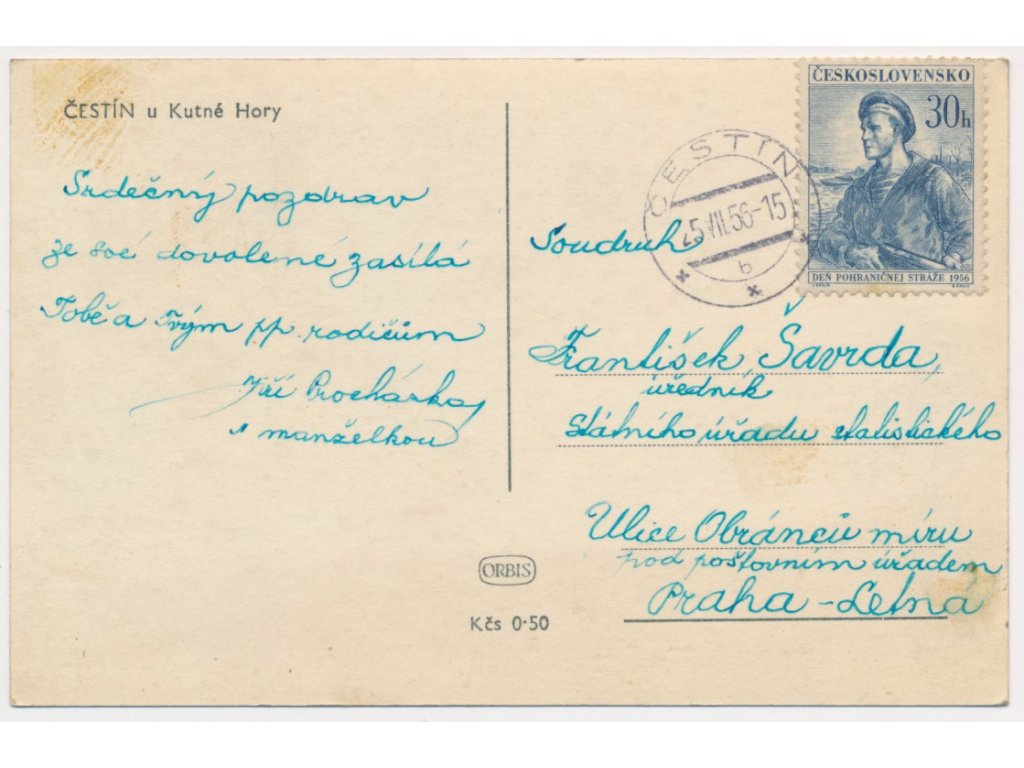 ČESTÍN u Kutné Hory
Srdečný pozdrav
ze své dovolené zasílá
Tobě a Tvým pp. rodičům
Jiří Procházka
s manželkou
ČESKOSLOVENSKO
30h
DEŇ POHRANIČNEJ STRÁŽE 1956
ČESTÍN
25.VII.56-15
b
Soudruh
František Šavrda,
úředník
Státního úřadu statistického
Ulice Obránců míru
pod poštovním úřadem
Praha-Letná
ORBIS
Kčs 0·50